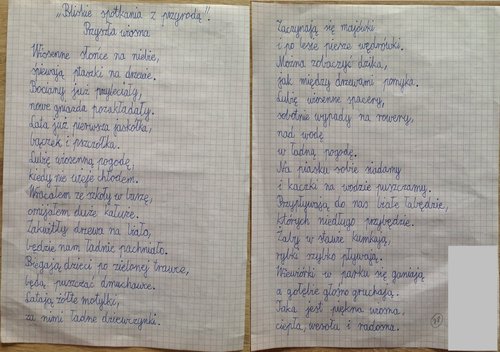 „Bliskie spotkania z przyrodą”.
Przyszła wiosna
Wiosenne słońce na niebie,
śpiewają ptaszki na drzewie.
Bociany już przyleciały,
nowe gniazda pozakładały.
Lata już pierwsza jaskółka,
bączek i pszczółka.
Lubię wiosenną pogodę,
kiedy nie wieje chłodem.
Wracałem ze szkoły w burzę,
omijałem duże kałuże.
Zakwitły drzewa na biało,
będzie nam ładnie pachniało.
Biegają dzieci po zielonej trawce,
będą puszczać dmuchawce.
Latają żółte motylki,
za nimi ładne dziewczynki.
Zaczynają się majówki
i po lesie piesze wędrówki.
Można zobaczyć dzika,
jak między drzewami pomyka.
Lubię wiosenne spacery,
sobotnie wypady na rowery,
nad wodę
w ładną pogodę.
Na piasku sobie siadamy
i kaczki na wodzie puszczamy.
Przypływają do nas białe łabędzie,
których niedługo przybędzie.
Żaby w stawie kumkają,
rybki szybko pływają.
Wiewiórki w parku się ganiają
a gołębie głośno gruchają.
Taka jest piękna wiosna
ciepła, wesoła i radosna.